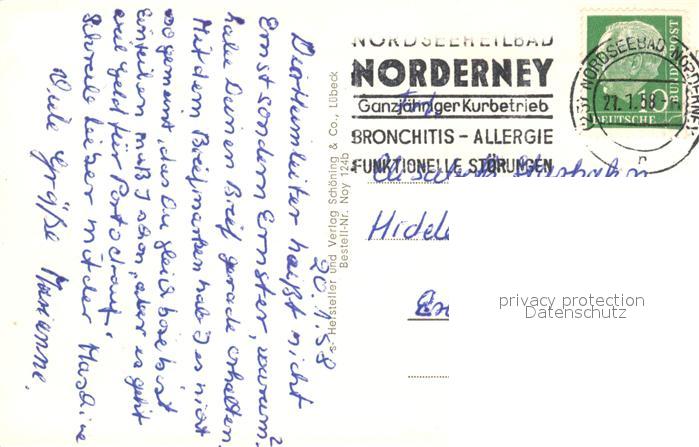 20.1.58
Der Heimleiter heißt nicht
Ernst sondern Ernster, warum?
habe Deinen Brief gerade erhalten.
Mit dem Briefmarken hab I es nicht
so gemeint, das Du gleich böse bist
Einteilen muß I schon, aber es geht
viel Geld für Porto drauf.
Schreibe lieber mit der Maschine
Viele Grüße Marianne.
s- Hersteller und Verlag Schöning & Co., Lübeck
Bestell-Nr. Noy 124b
NORDSEEHEILBAD
NORDERNEY
Ganzjähriger Kurbetrieb
BRONCHITIS - ALLERGIE
FUNKTIONELLE STÖRUNGEN
NORDSEEBAD NORDERNEY
21.1.58
DEUTSCHE
BUNDESPOST
10
Hidde
privacy protection
Datenschutz